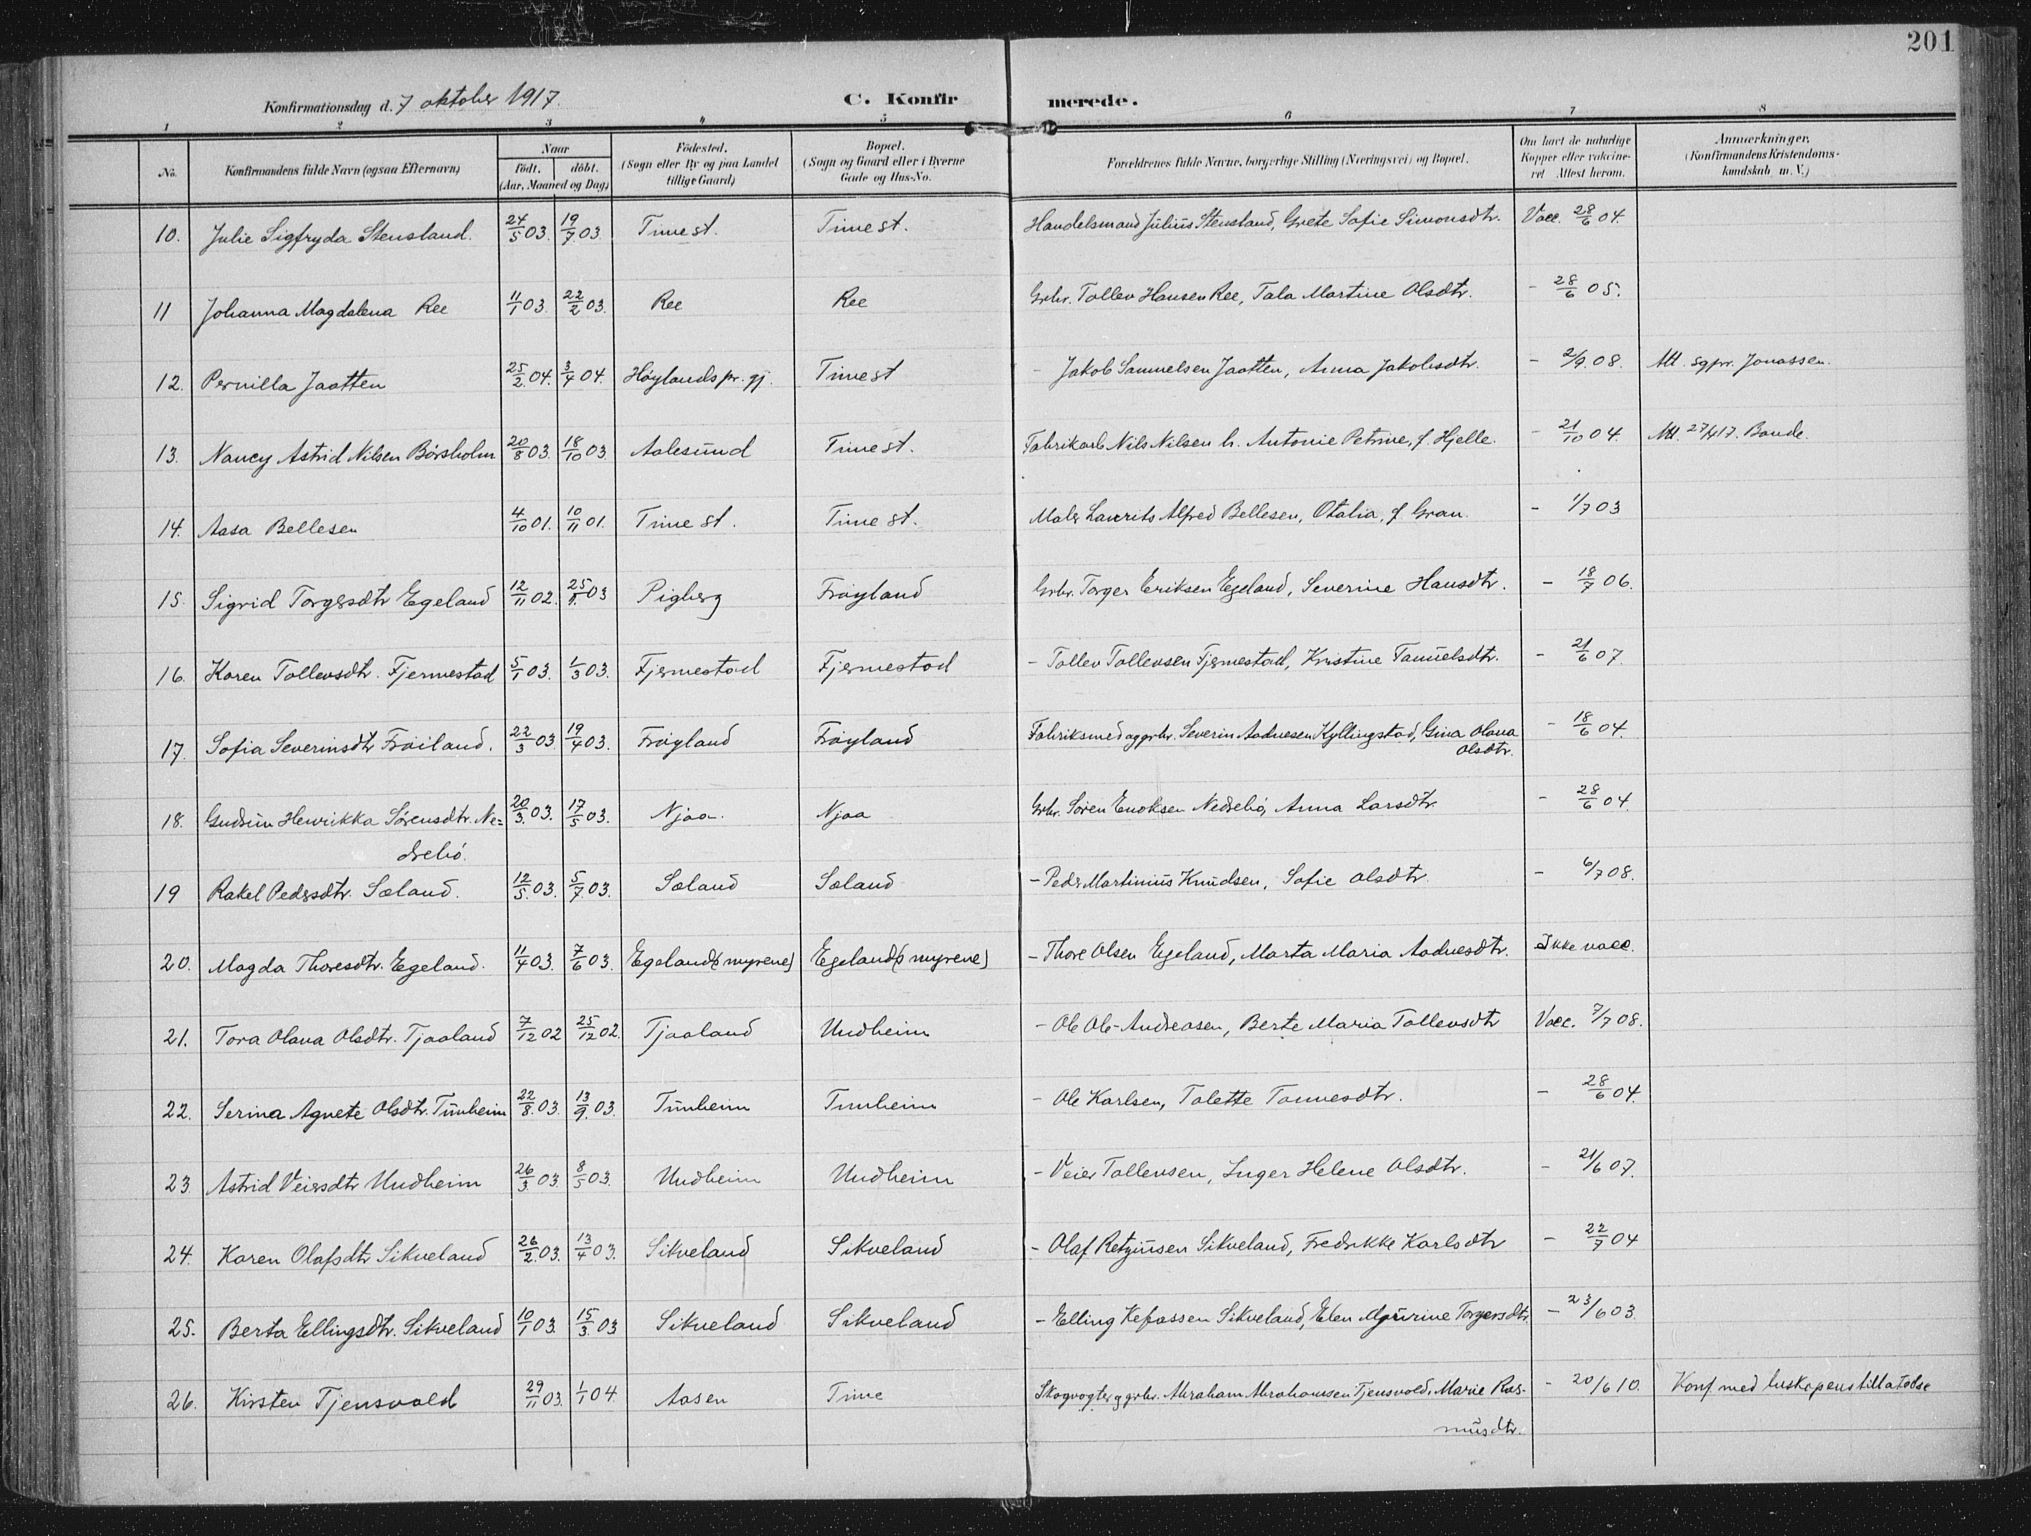 201
Konfirmationsdag d. 7 oktober 1917. C. Konfirmerede.
1 2 3 4 5 6 7 8
No. Konfirmandens fulde Navn (ogsaa Efternavn) Naar födt. döbt. (Aar, Maaned og Dag) Födested. (Sogn eller By og paa Landet tillige Gaard) Bopæl. (Sogn og Gaard eller i Byerne Gade og Hus-No. Forældrenes fulde Navne, borgerlige Stilling (Næringsvei) og Bopæl. Om havt de naturlige Kopper eller vaccineret Attest herom. Anmærkninger. (Konfirmandens Kristendomskundskab m. V.)
10. Julie Sigfryda Stensland. 24/5 03. 19/7 03. Time st. Time st. Handelsmand Julius Stensland, Grete Sofie Simonsdtr. Vacc. 28/6 04.
11 Johanna Magdalena Ree 11/1 03. 22/2 03. Ree Ree Grbr. Tollev Hansen Ree, Tala Martine Olsdtr. - 28/6 05.
12. Pernilla Jaatten 25/2 04. 3/4 04. Høylands pr. gj. Time st - Jakob Samuelsen Jaatten, Anna Jakobsdtr. - 2/9 08. Att. sgpr. Jonassen.
13. Nancy Astrid Nilsen Børsholm 20/8 03. 18/10 03. Aalesund Time st. Fabrikarb Nils Nilsen h. Antonie Petrine, f. Hjelle. - 21/10 04. Att. 27/4 17. Bande.
14. Aasa Bellesen 4/10 01. 10/11 01. Time st. Time st. Maler Laurits Alfred Bellesen, Otalia, f. Gran. - 1/7 03
15. Sigrid Torgersdtr Egeland 12/11 02. 25/1 03 Pigberg Frøyland Grbr. Torger Eriksen Egeland, Severine Hansdtr. - 18/7 06.
16. Karen Tollevsdtr. Fjermestad 5/1 03. 1/3 03. Fjermestad Fjermestad - Tollev Tollevsen Fjermestad, Kristine Tamuelsdtr. - 21/6 07.
17. Sofia Severinsdtr Frøiland. 22/3 03. 19/4 03. Frøyland Frøyland Fabriksmed og grbr. Severin Aadnesen Kyllingstad, Gina Olava - 18/6 04.
Olsdtr.
18. Gudrun Henrikka Sørensdtr. Ne= 20/3 03. 17/5 03. Njaa Njaa Grbr. Søren Enoksen Nedrebø, Anna Larsdtr. - 28/6 04.
drebø.
19 Rakel Pedersdtr. Sæland. 12/5 03. 5/7 03. Sæland Sæland - Peder Martinius Knudsen, Sofie Olsdtr. - 6/7 08.
20. Magda Thoresdtr. Egeland. 11/4 03. 7/6 03. Egeland (smyrene) Egeland (smyrene) - Thore Olsen Egeland, Marta Maria Aadnesdtr. Ikke vacc.
21. Tora Olava Olsdtr. Tjaaland 7/12 02 25/12 02. Tjaaland Undheim - Ole Ole-Andreasen, Berte Maria Tollevsdtr Vacc. 7/7 08.
22. Serina Agnete Olsdtr. Tunheim 22/8 03. 13/9 03. Tunheim Tunheim - Ole Karlsen, Talette Tonnesdtr. - 28/6 04.
23. Astrid Veiersdtr Undheim 26/3 03. 8/5 03. Undheim Undheim - Veier Tollevsen, Inger Helene Olsdtr. - 21/6 07.
24. Karen Olafsdtr Sikveland 26/2 03. 13/4 03. Sikveland Sikveland - Olaf Retziusen Sikveland, Fredrikke Karlsdtr - 22/7 04
25. Berta Ellingsdtr. Sikveland 10/1 03. 15/3 03 Sikveland Sikveland - Elling Kefassen Sikveland, Elen Torgersdtr. - 23/6 03.
26. Kirsten Tjensvold 29/11 03. 1/1 04. Aasen Time Skogvogter og grbr. Abraham Abrahamsen Tjensvold, Marie Ras- - 20/6 10. Konf med biskopens tilladelse
musdtr.